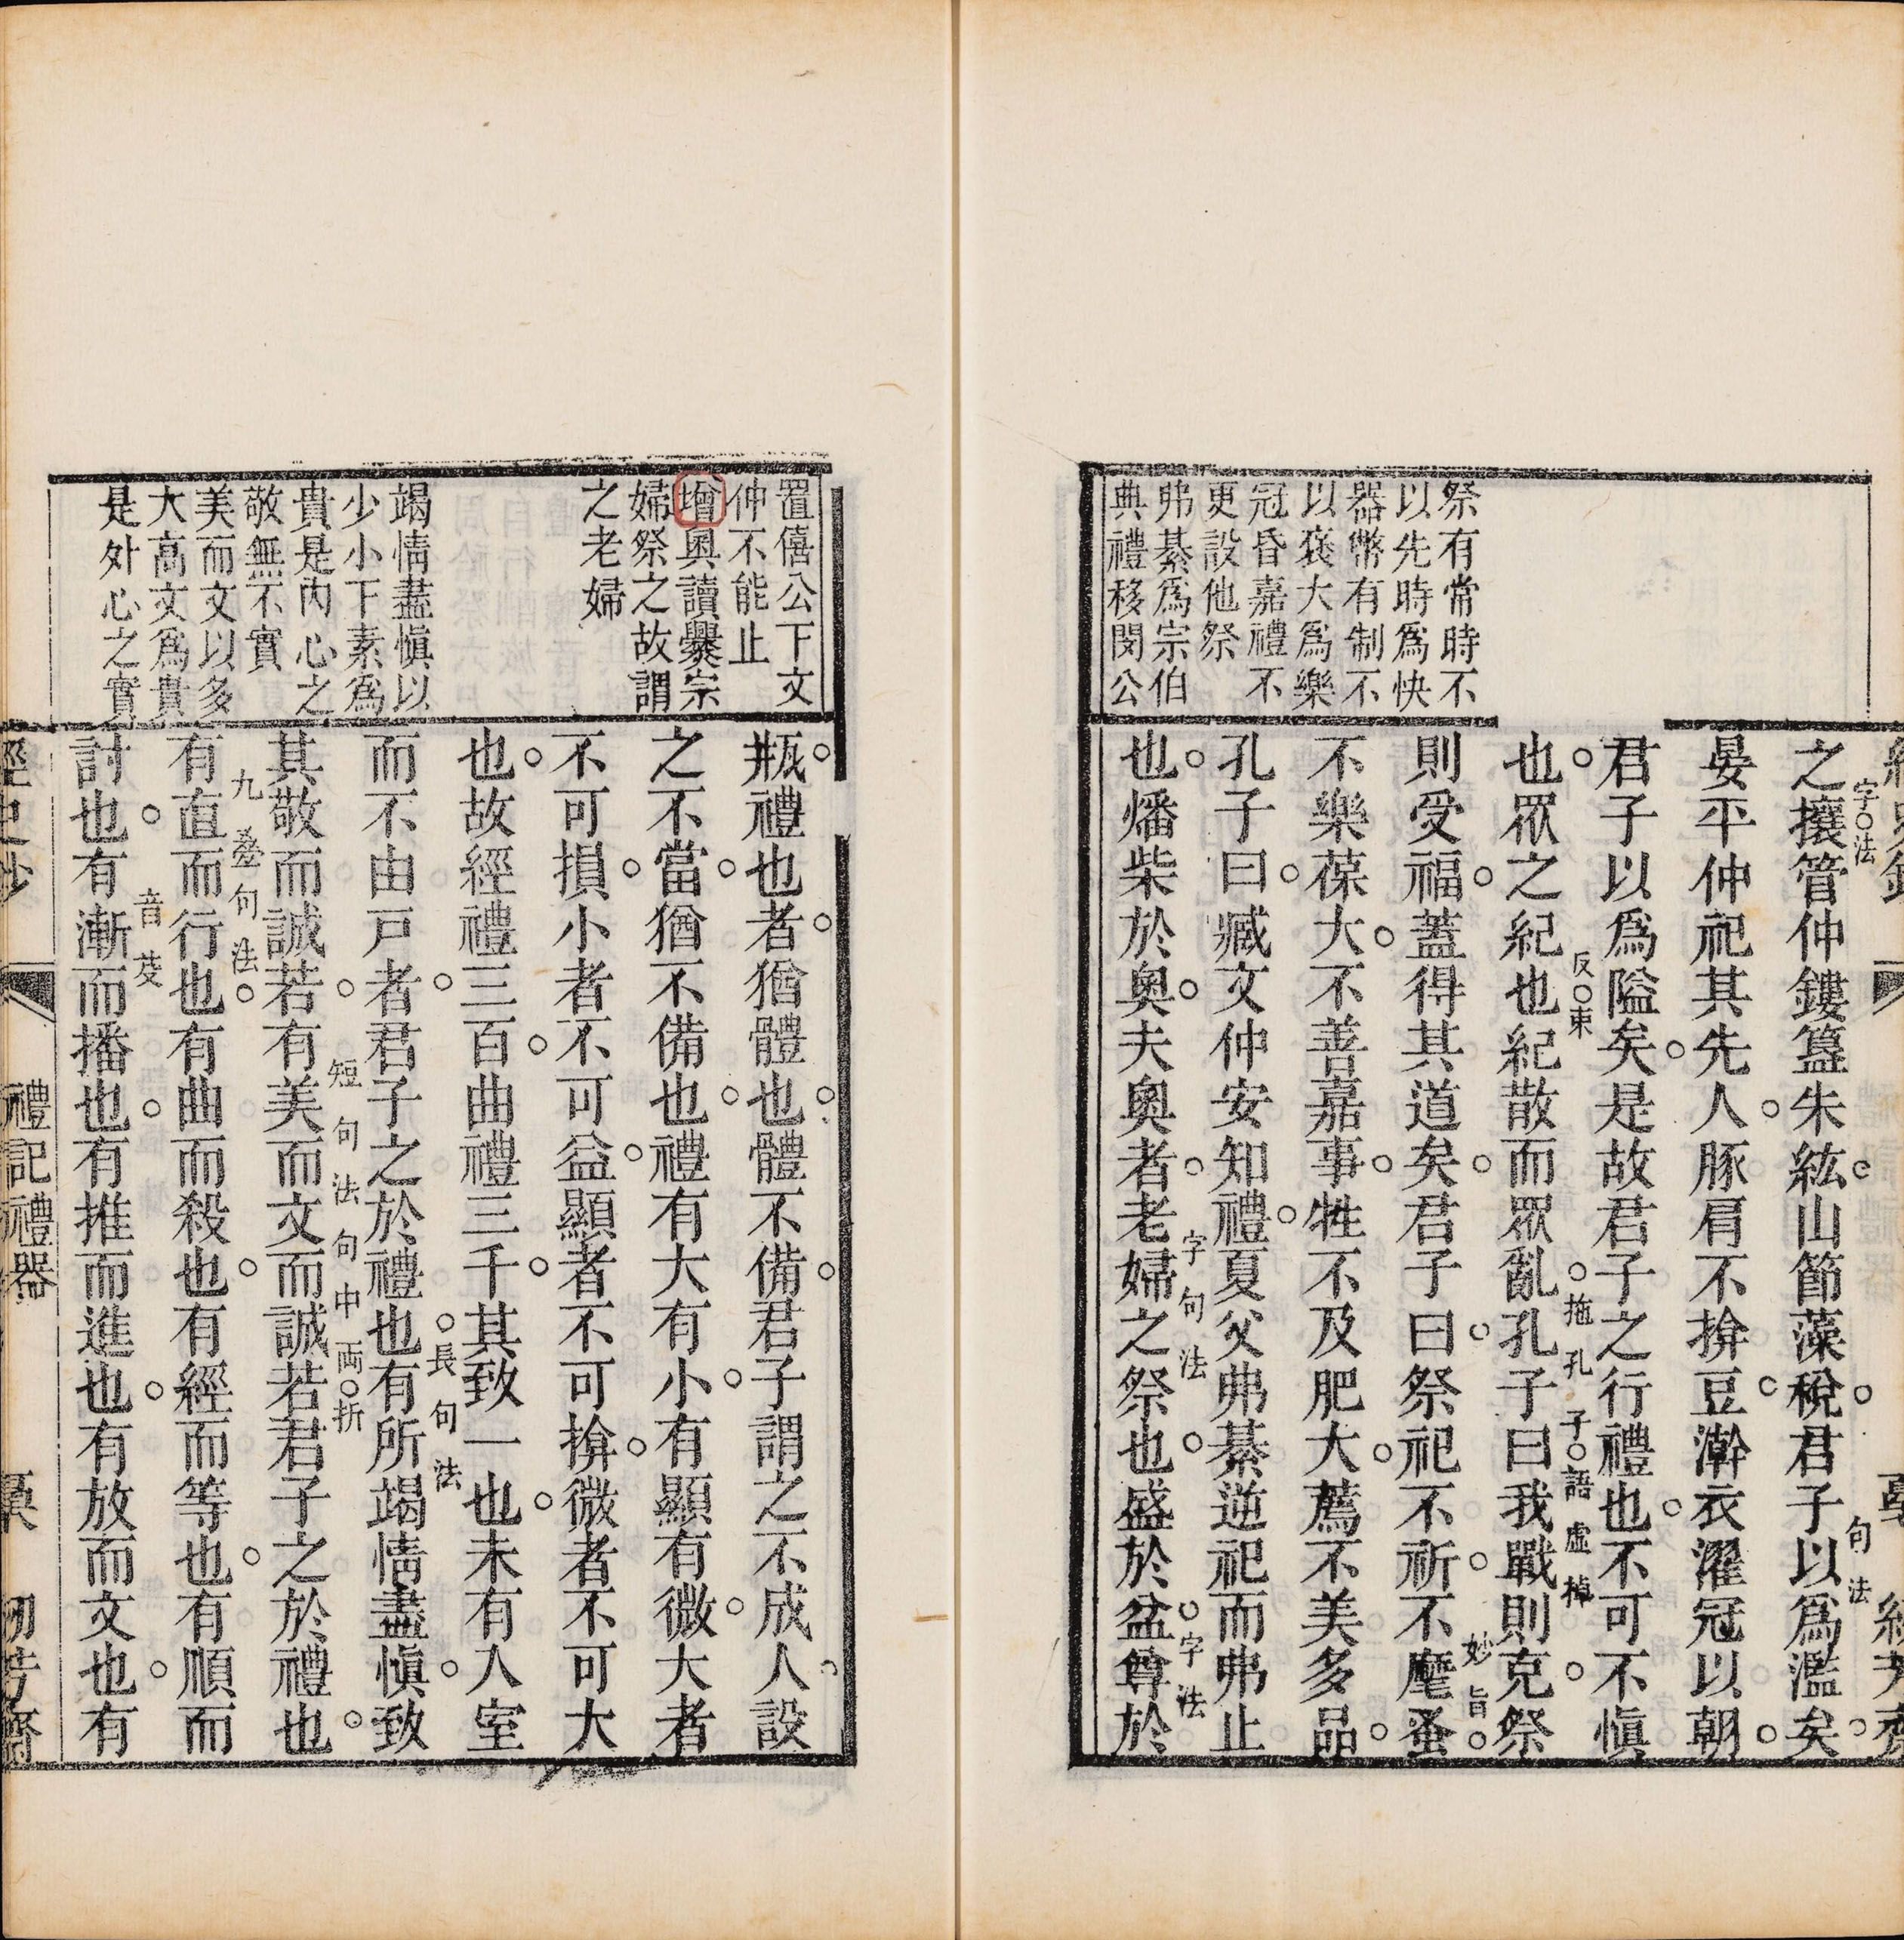 祭有常時不
以先時爲快
器幣有制不
以褒大爲樂
冠昏嘉禮不
更設他祭
弗綦爲宗伯
典禮移閔公
之攘管仲鏤簋朱紘山節藻梲君子以爲濫矣
字法
句法
晏平仲祀其先人豚肩不揜豆澣衣濯冠以朝
君子以爲隘矣是故君子之行禮也不可不愼
也眾之紀也紀散而眾亂孔子曰我戰則克祭
反束
拖孔子語虛掉
則受福蓋得其道矣君子曰祭祀不祈不麾蚤
妙旨
不樂葆大不善嘉事牲不及肥大薦不美多品
孔子曰臧文仲安知禮夏父弗綦逆祀而弗止
也燔柴於奧夫奧者老婦之祭也盛於盆尊於
字句法
字法
置僖公下文
仲不能止
增奧讀爨宗
婦祭之故謂
之老婦
竭情盡愼以
少小下素爲
貴是內心之
敬無不實
美而文以多
大高文爲貴
是外心之實
瓶禮也者猶體也體不備君子謂之不成人設
之不當猶不備也禮有大有小有顯有微大者
不可損小者不可益顯者不可揜微者不可大
也故經禮三百曲禮三千其致一也未有入室
而不由戸者君子之於禮也有所竭情盡愼致
長句法
其敬而誠若有美而文而誠若君子之於禮也
短句法句中両折
有直而行也有曲而殺也有經而等也有順而
九叠句法
討也有漸而播也有推而進也有放而文也有
音芟
禮記禮器